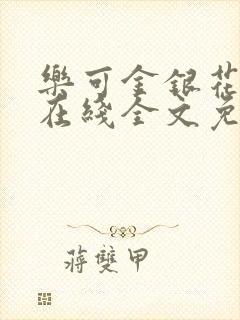 樂可金銀花
在綫全文免
蔣雙甲